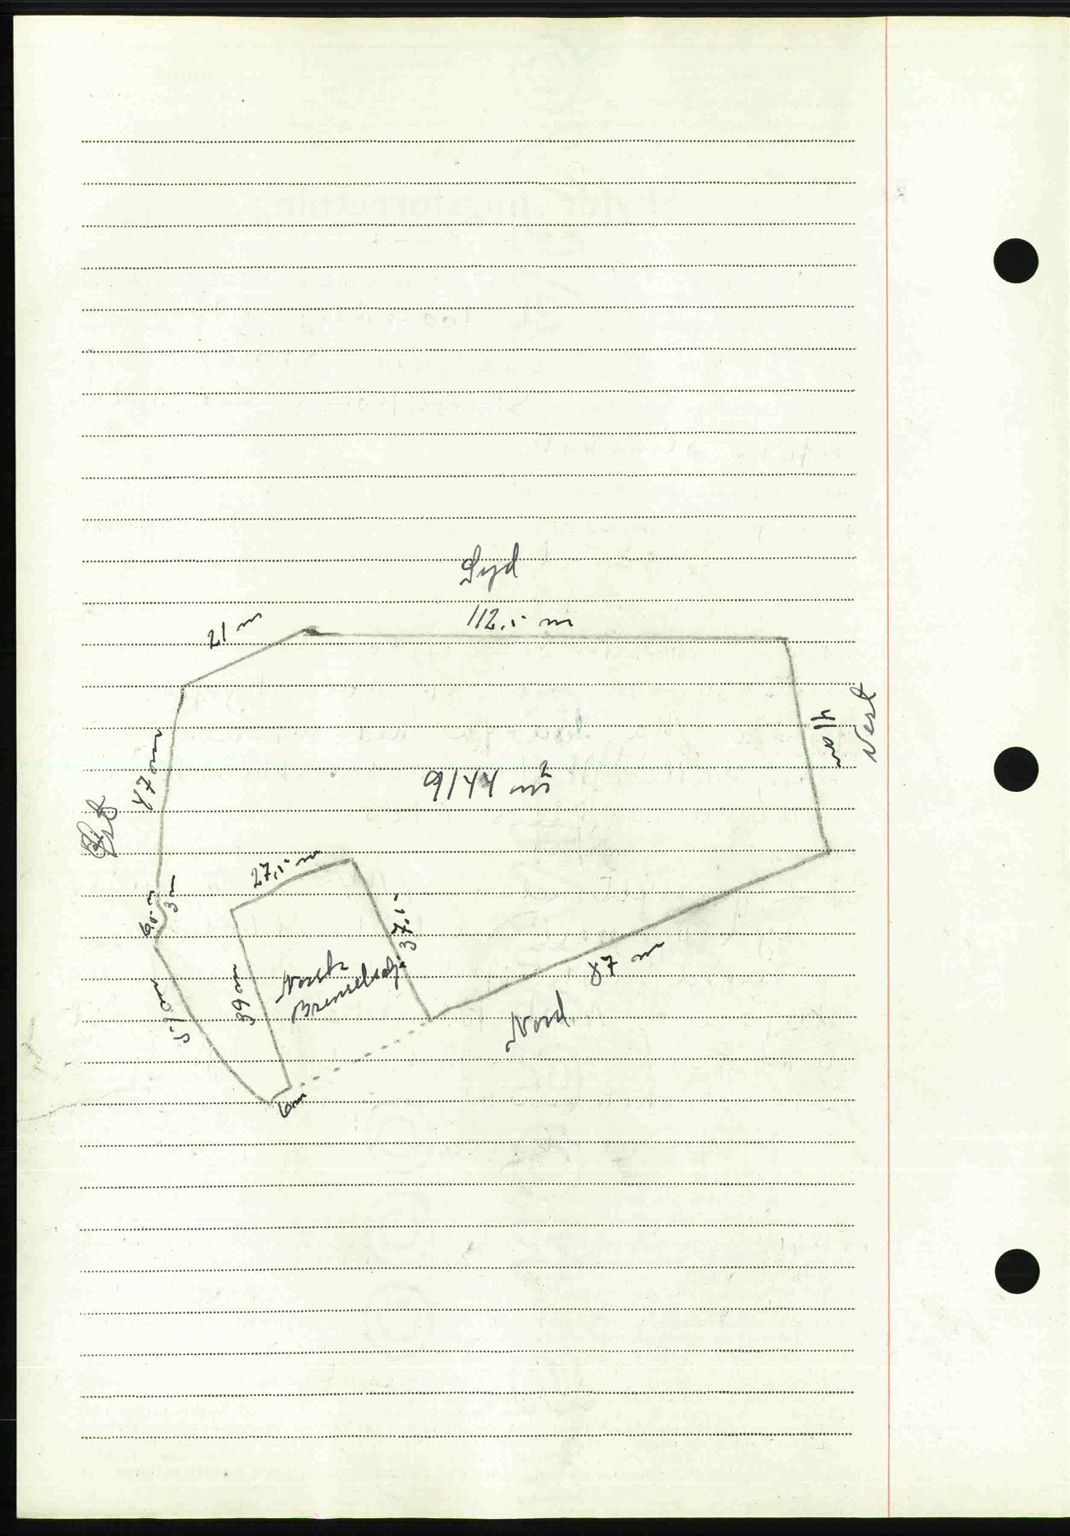 Syd
112,5 m
21 m
41 m
Vest
47 m
9144 m²
Øst
27,5 m
3 m
6 m
37,5
39 m
Norsk
Brenselsdj.
87 m
51 m
Nord
6 m